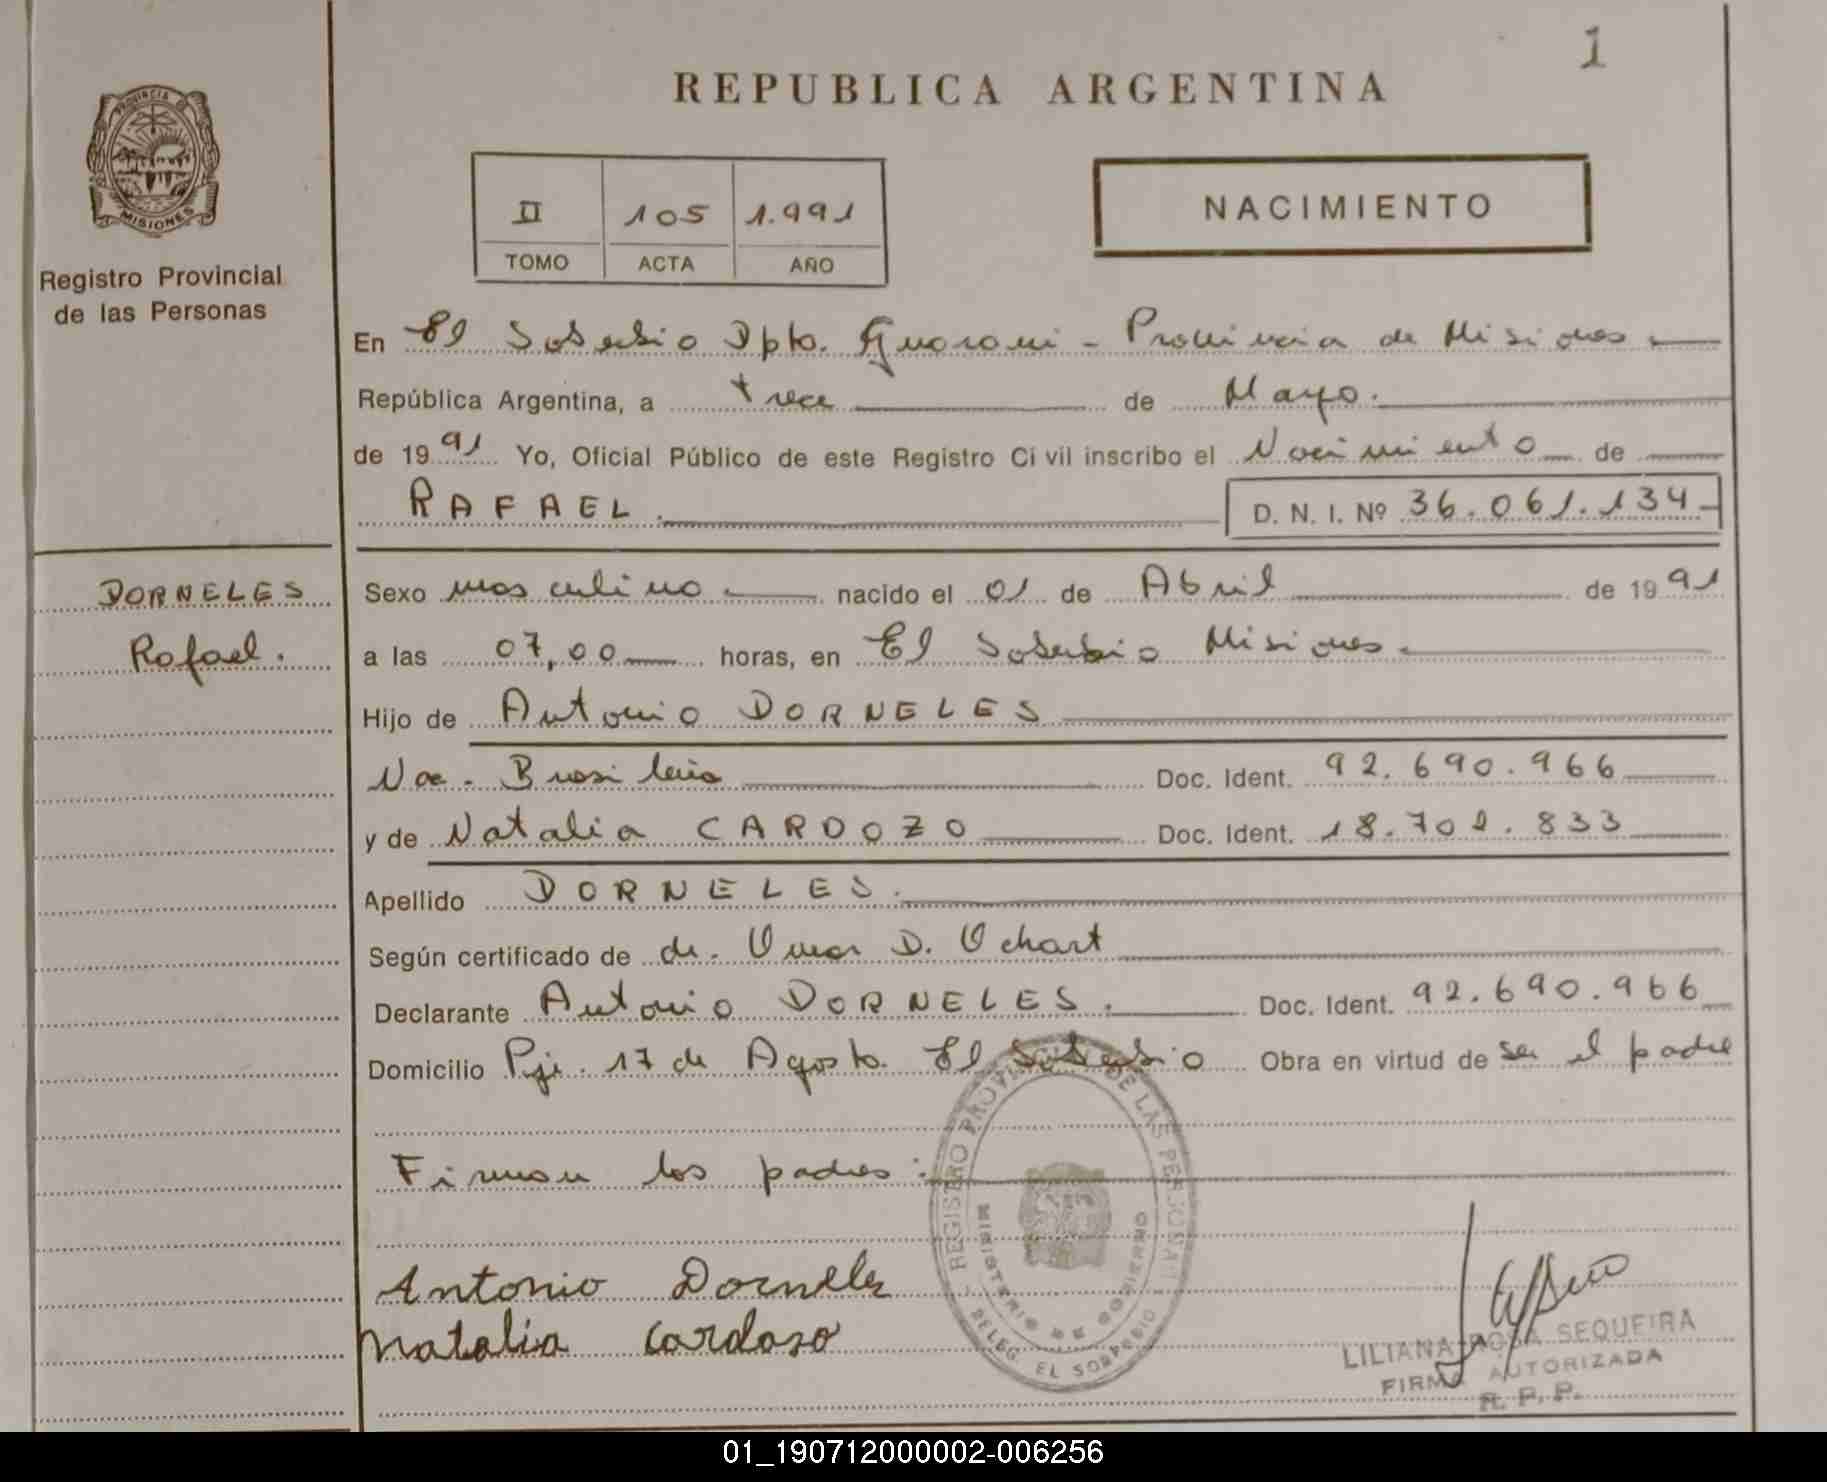 1
REPUBLICA ARGENTINA
PROVINCIA DE
MISIONES
Registro Provincial
de las Personas
II 105 1.991
TOMO ACTA AÑO
NACIMIENTO
En El Soberbio Dpto. Guarani - Provincia de Misiones
República Argentina, a trece de Mayo.
de 1991 Yo, Oficial Público de este Registro Civil inscribo el Nacimiento de
RAFAEL. D. N. I. Nº 36.061.134
DORNELES
Rafael.
Sexo masculino nacido el 01 de Abril de 1991
a las 07,00 horas, en El Soberbio Misiones.
Hijo de Antonio DORNELES
Nac. Brasileña Doc. Ident. 92.690.966
y de Natalia CARDOZO Doc. Ident. 18.702.833
Apellido DORNELES.
Según certificado de dr. Omar D. Ochart
Declarante Antonio DORNELES. Doc. Ident. 92.690.966
Domicilio Pje. 17 de Agosto. El Soberbio Obra en virtud de ser el padre
Firman los padres:
Antonio Dorneles
Natalia Cardozo
REGISTRO PROVINCIAL DE LAS PERSONAS
MINISTERIO DE GOBIERNO
DELEG. EL SOBERBIO
LILIANA ROSA SEQUEIRA
FIRMA AUTORIZADA
R. P. P.
01_190712000002-006256